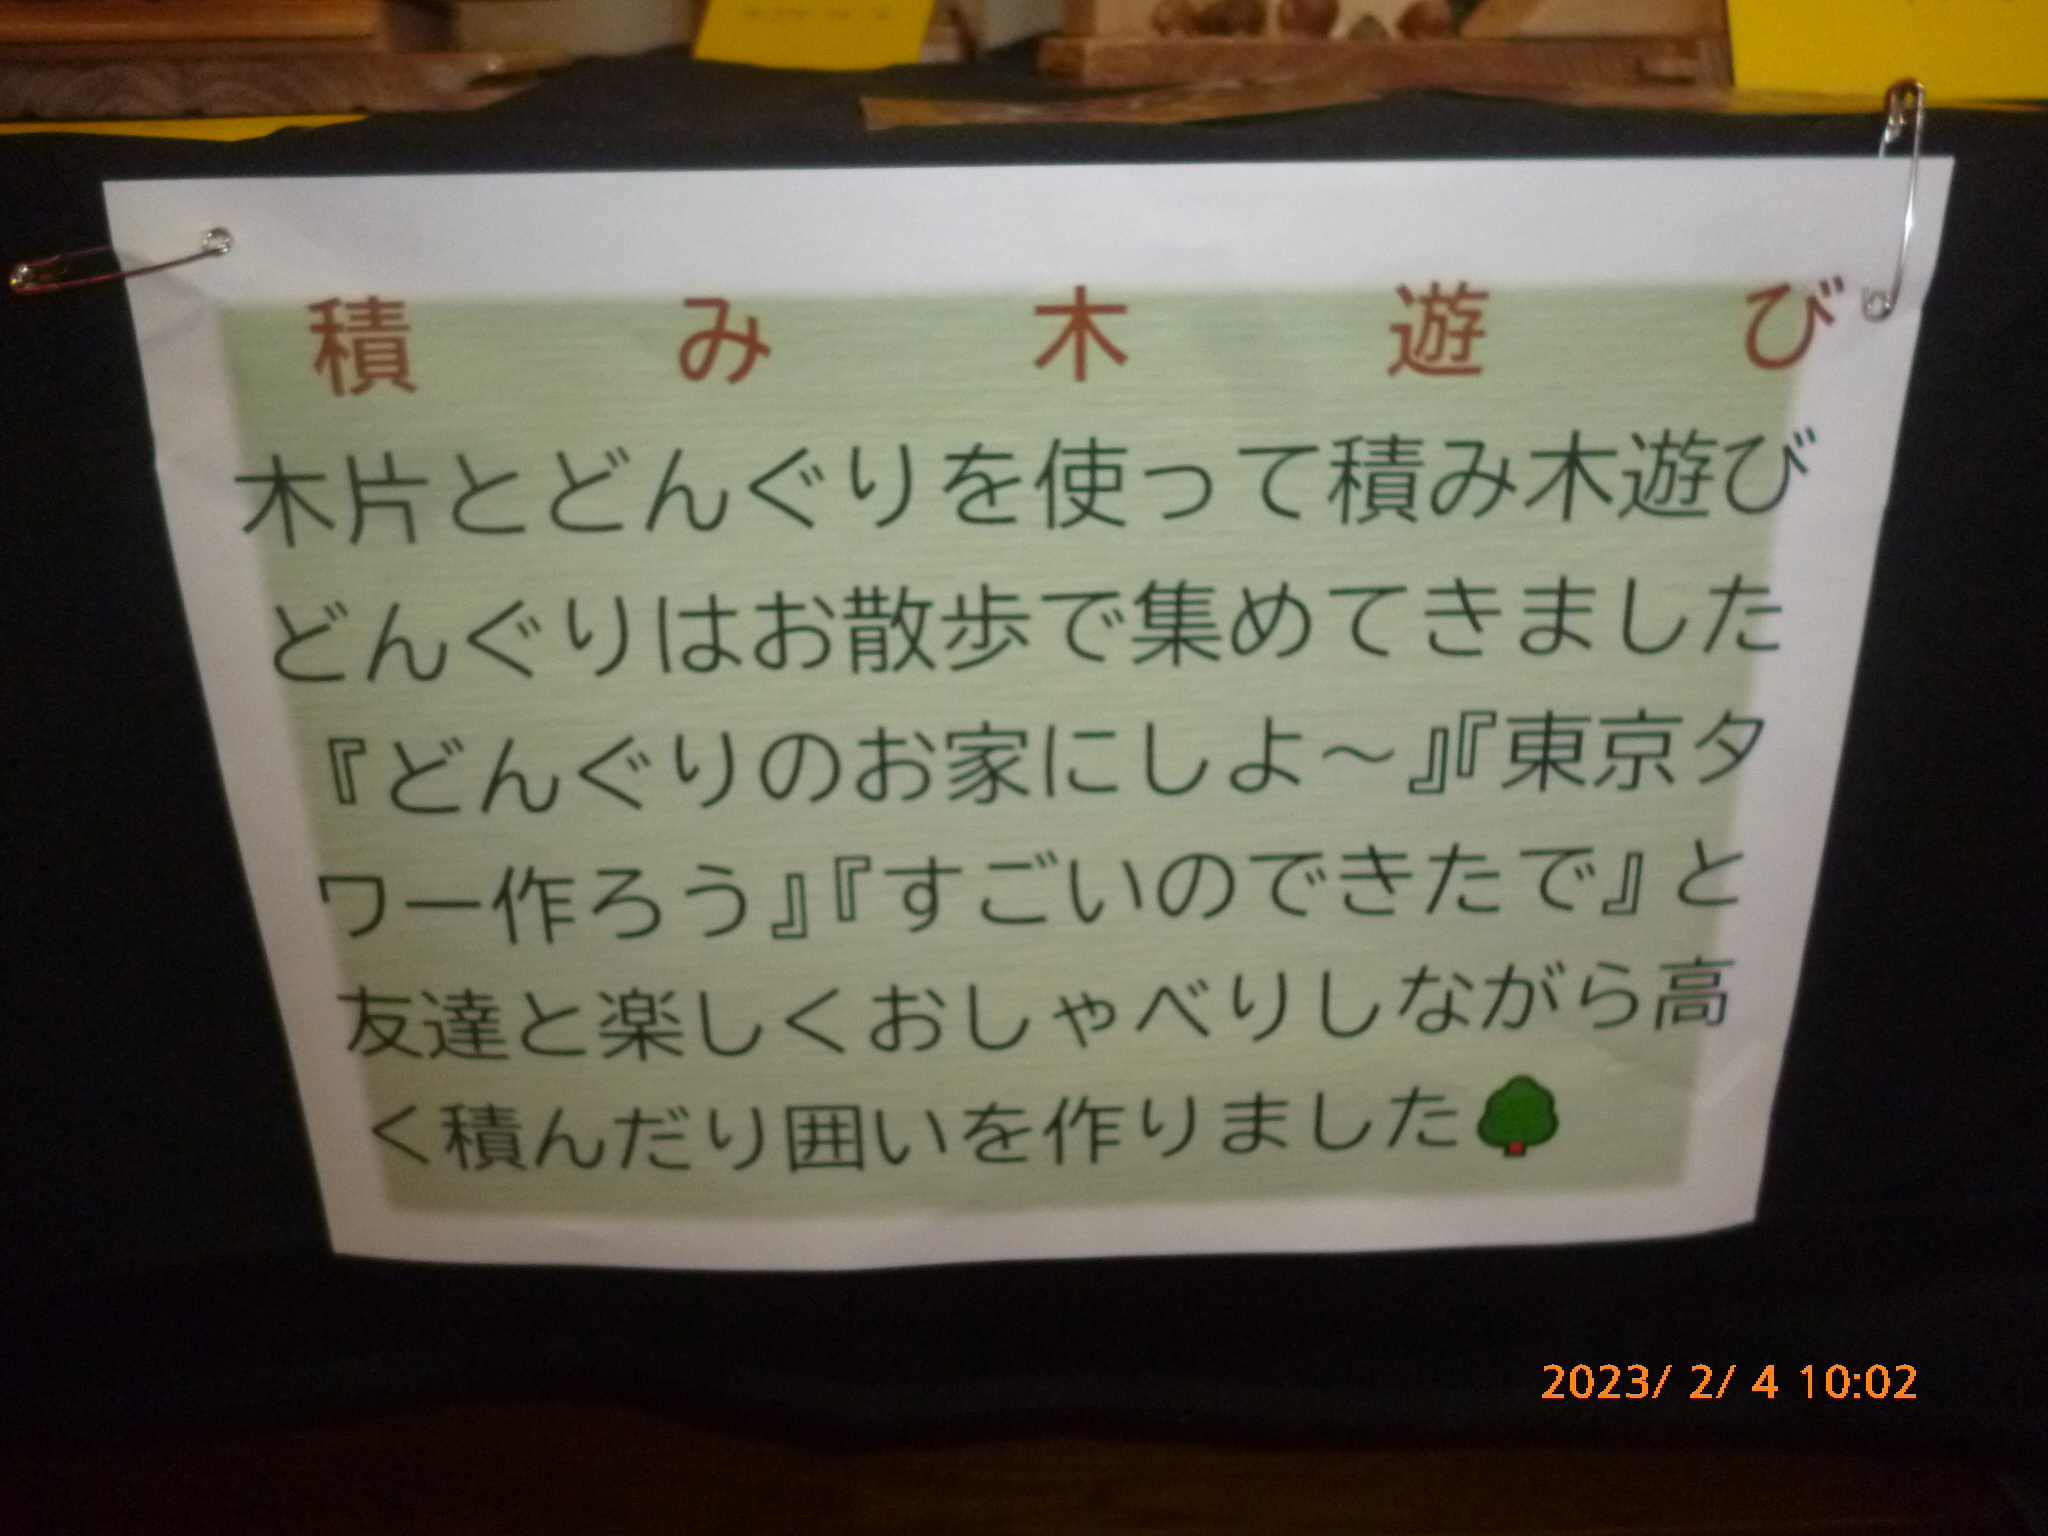 積み木遊び
木片とどんぐりを使って積み木遊び
どんぐりはお散歩で集めてきました
『どんぐりのお家にしよ～』『東京タ
ワー作ろう』『すごいのできたで』と
友達と楽しくおしゃべりしながら高
く積んだり囲いを作りました
2023/ 2/ 4 10:02